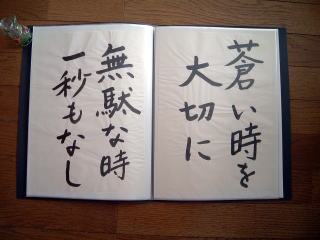 蒼い時を
大切に
無駄な時
一秒もなし